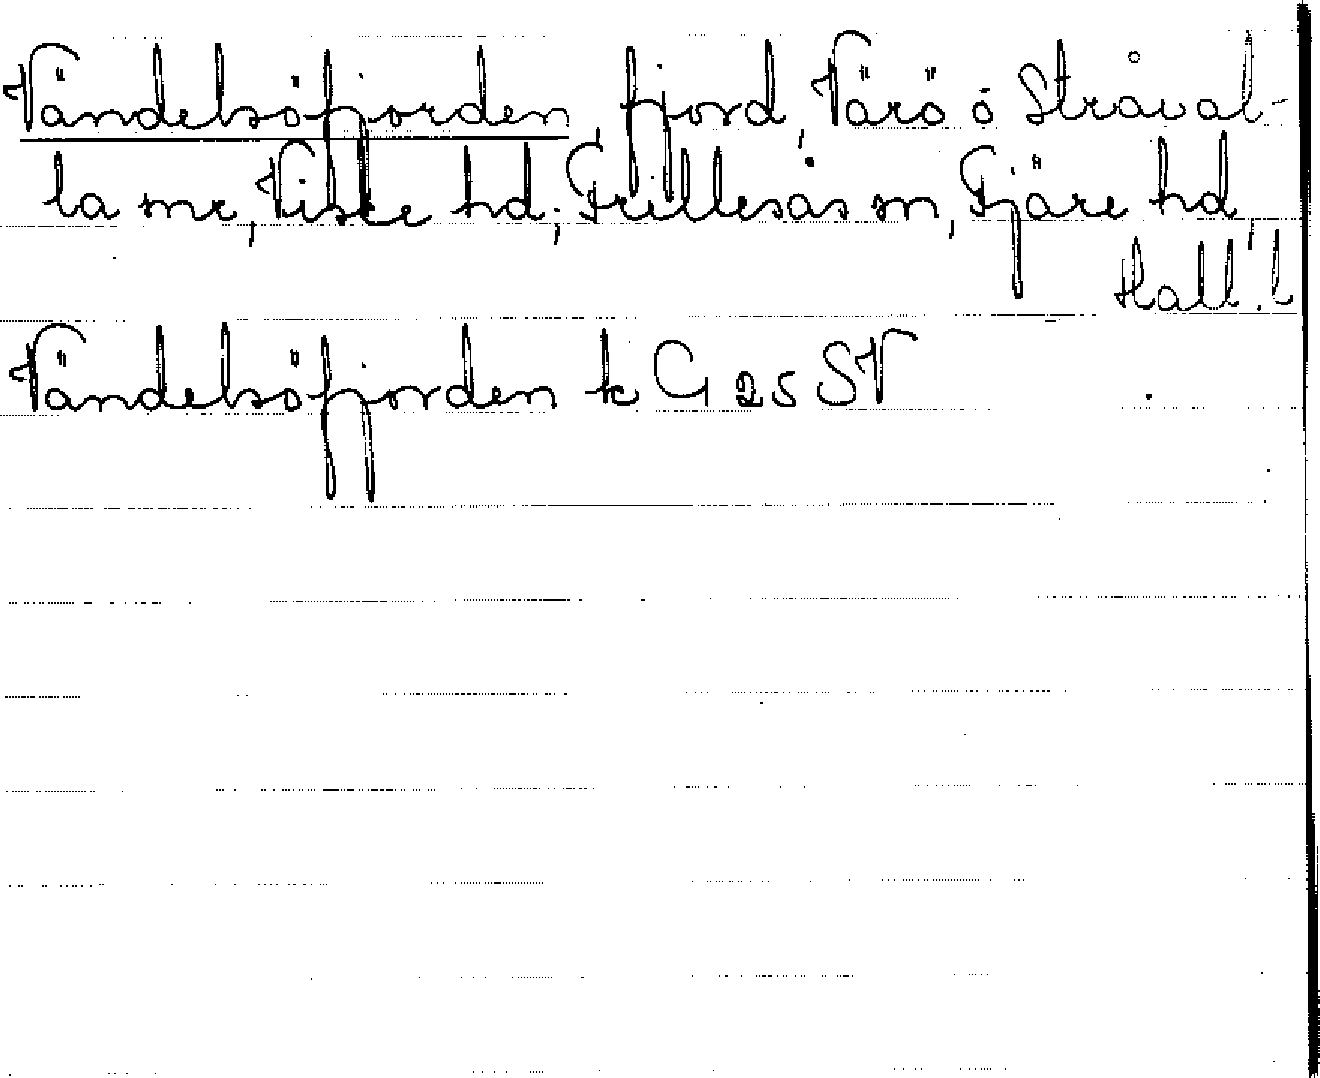 Vändelsöfjorden, fjord, Värö o Stråval-
la snr, Viske hd; Frillesås sn, Fjäre hd,
Hall. l
Vändelsöfjorden k G 25 SV